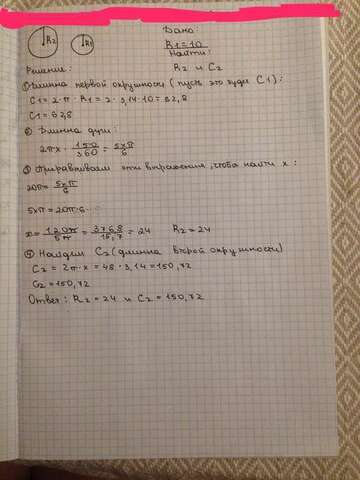 R2
R1
Дано:
R1=10
Найти:
R2 и C2
Решение:
① Длинна первой окружности (пусть это будет C1):
C1 = 2·π·R1 = 2·3,14·10 = 62,8
C1 = 62,8
② Длинна дуги:
2πx · 150/360 = 5xπ/6
③ Приравниваем эти выражения, чтобы найти x:
20π = 5xπ/6
5xπ = 20π·6
x = 120π/5π = 376,8/15,7 = 24 R2 = 24
④ Найдём C2 (длинна второй окружности)
C2 = 2π·x = 48·3,14 = 150,72
C2 = 150,72
Ответ: R2 = 24 и C2 = 150,72